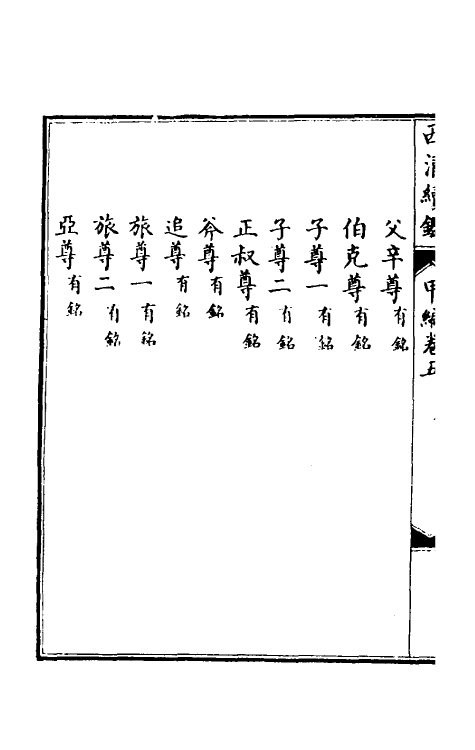 西清續鑑 甲編卷五
父辛尊有銘
伯克尊有銘
子尊一有銘
子尊二有銘
正叔尊有銘
斧尊有銘
追尊有銘
旅尊一有銘
旅尊二有銘
亞尊有銘